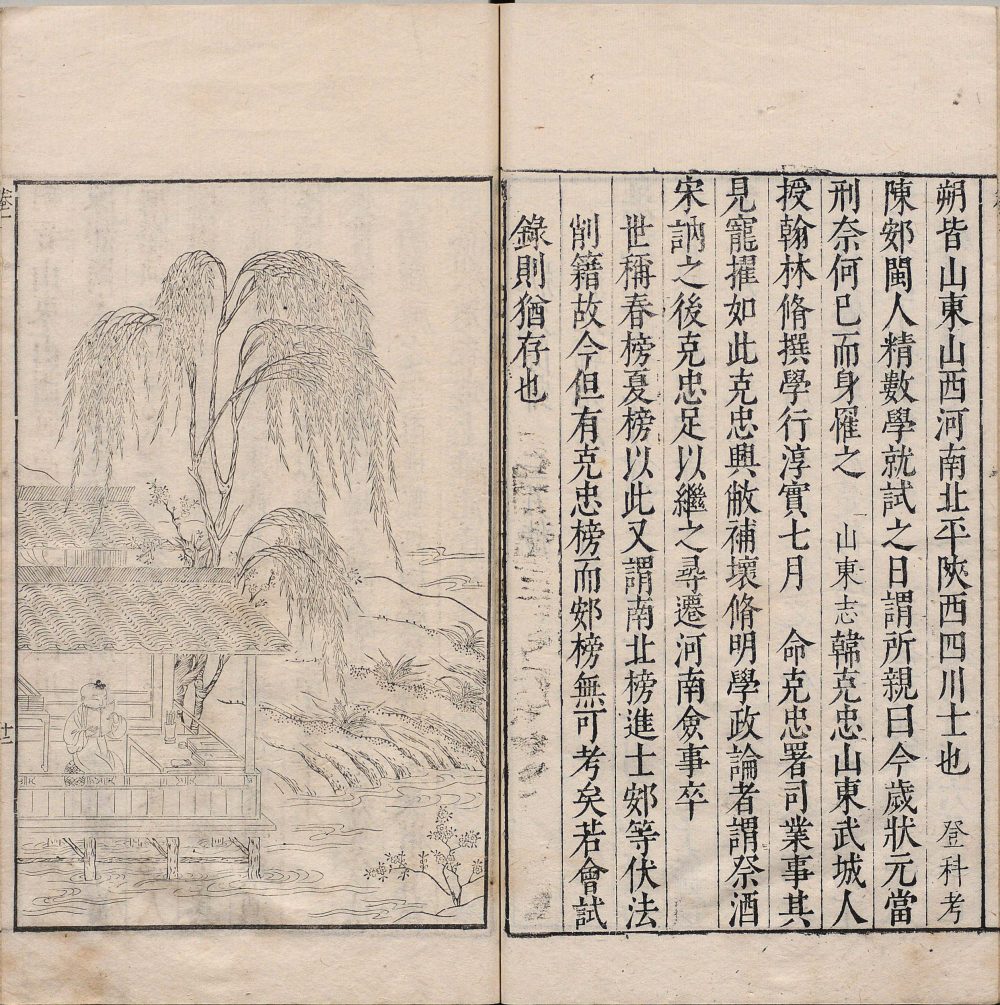 朔皆山東山西河南北平陝西四川士也　登科考
陳䢿閩人精數學就試之日謂所親曰今歲狀元當
刑奈何已而身罹之　山東志韓克忠山東武城人
授翰林脩撰學行淳實七月　命克忠署司業事其
見寵擢如此克忠興敝補壞脩明學政論者謂祭酒
宋訥之後克忠足以繼之尋遷河南僉事卒
世稱春榜夏榜以此又謂南北榜進士䢿等伏法
削籍故今但有克忠榜而䢿榜無可考矣若會試
錄則猶存也
卷一
廿二